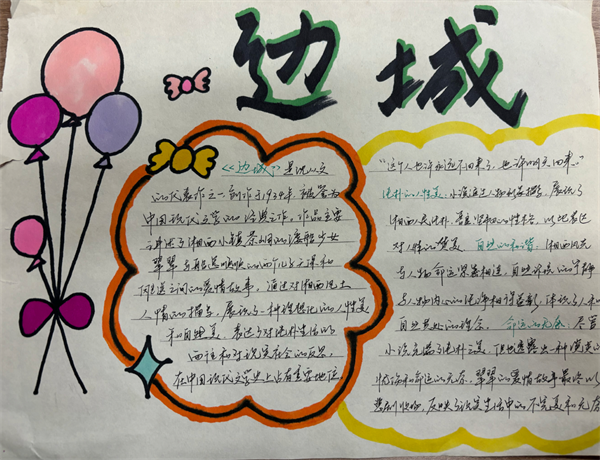 边城
《边城》是沈从文
的代表作之一,创作于1934年,被誉为
中国现代文学的经典之作。作品主要
讲述了湘西小镇茶峒的渡船少女
翠翠与船总顺顺的两个儿子天保和
傩送之间的爱情故事,通过对湘西风土
人情的描写,展示了一种理想化的人性美
和自然美,表达了对淳朴生活的
向往和对现实社会的反思,
在中国现代文学史上占有重要地位。
"这个人也许永远不回来了,也许明天回来。"
淳朴的人性美,小说通过人物形象描写,展示了
湘西人民淳朴、善良、正直的性格,以此表达
对人性的赞美,自然的和谐,湘西风光
与人物命运紧密相连,自然环境的宁静
与人物内心的纯净相得益彰,体现了人和
自然共处的理念,命运的无奈,尽管
小说充满了淳朴之美,但也透露出一种淡淡的
忧伤和命运的无奈,翠翠的爱情故事最终以
悲剧收场,反映了现实生活中的不完美和无奈